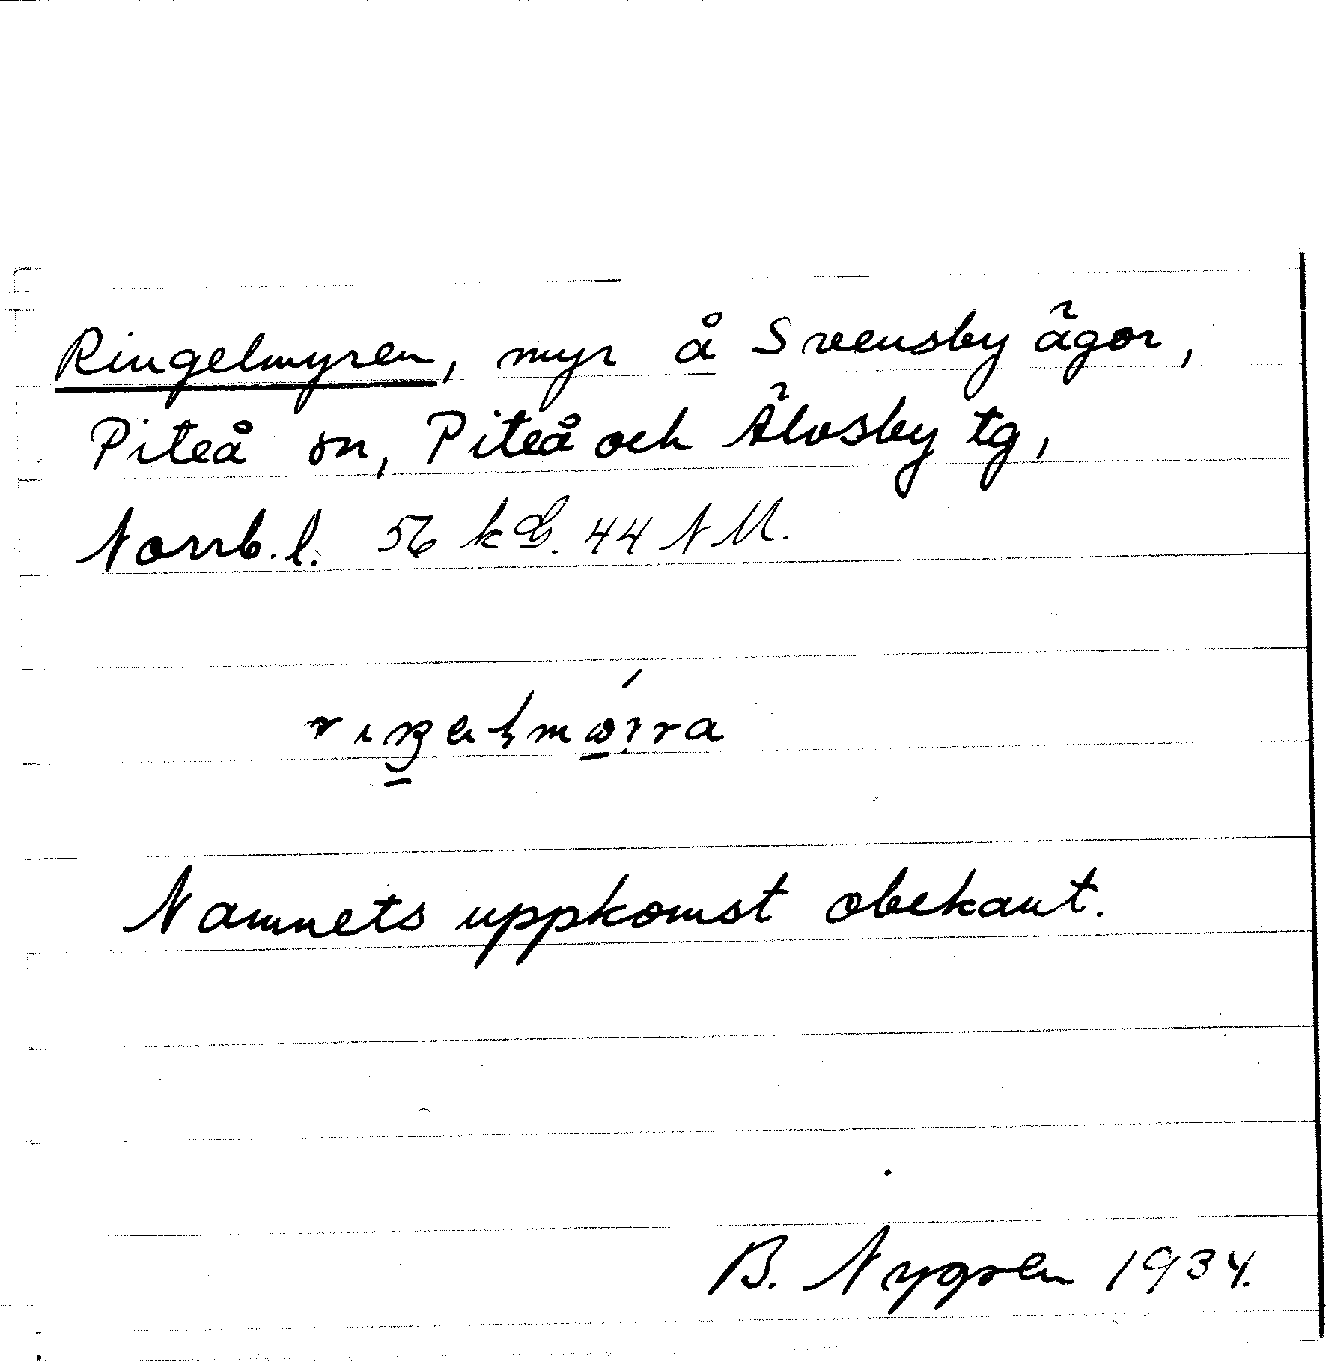 Ringelmyren, myr å Svensby ägor,
Piteå sn, Piteå och Älvsby tg,
Norrb. l. 56 k 44 N M.
Namnets uppkomst obekant.
B. Nygren 1934.